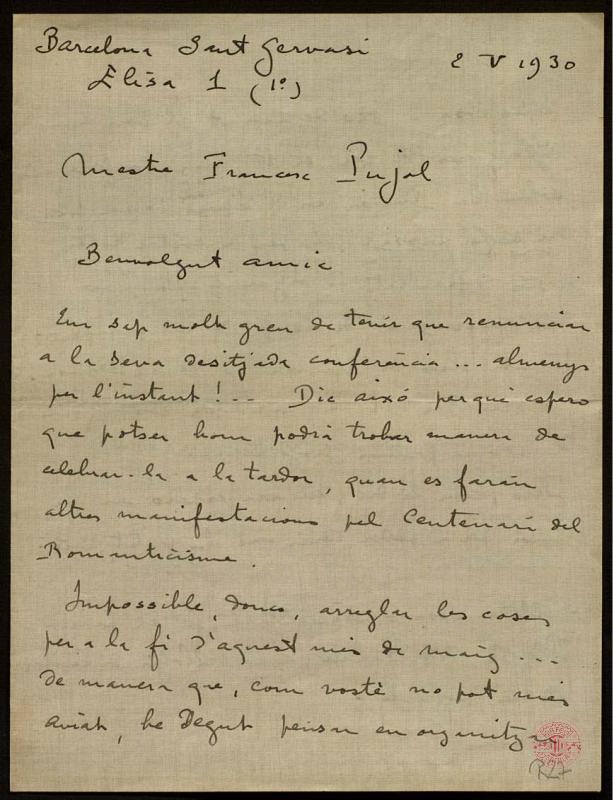 Barcelona Sant Gervasi
Elisa 1 (1º)
2 V 1930
Mestre Francesc Pujol
Benvolgut amic
Em sap molt greu de tenir que renunciar
a la seva desitjada conferència ... almenys
per l'instant! .. Dic aixó perquè espero
que potser hom podrà trobar manera de
celebrar-la a la tardor, quan es faràn
altres manifestacions pel Centenari del
Romanticisme.
Impossible, doncs, arreglar les coses
per a la fi d'aquest mès de maig ...
de manera que, com vostè no pot mès
aviat, he degut pensar en organitzar
R27